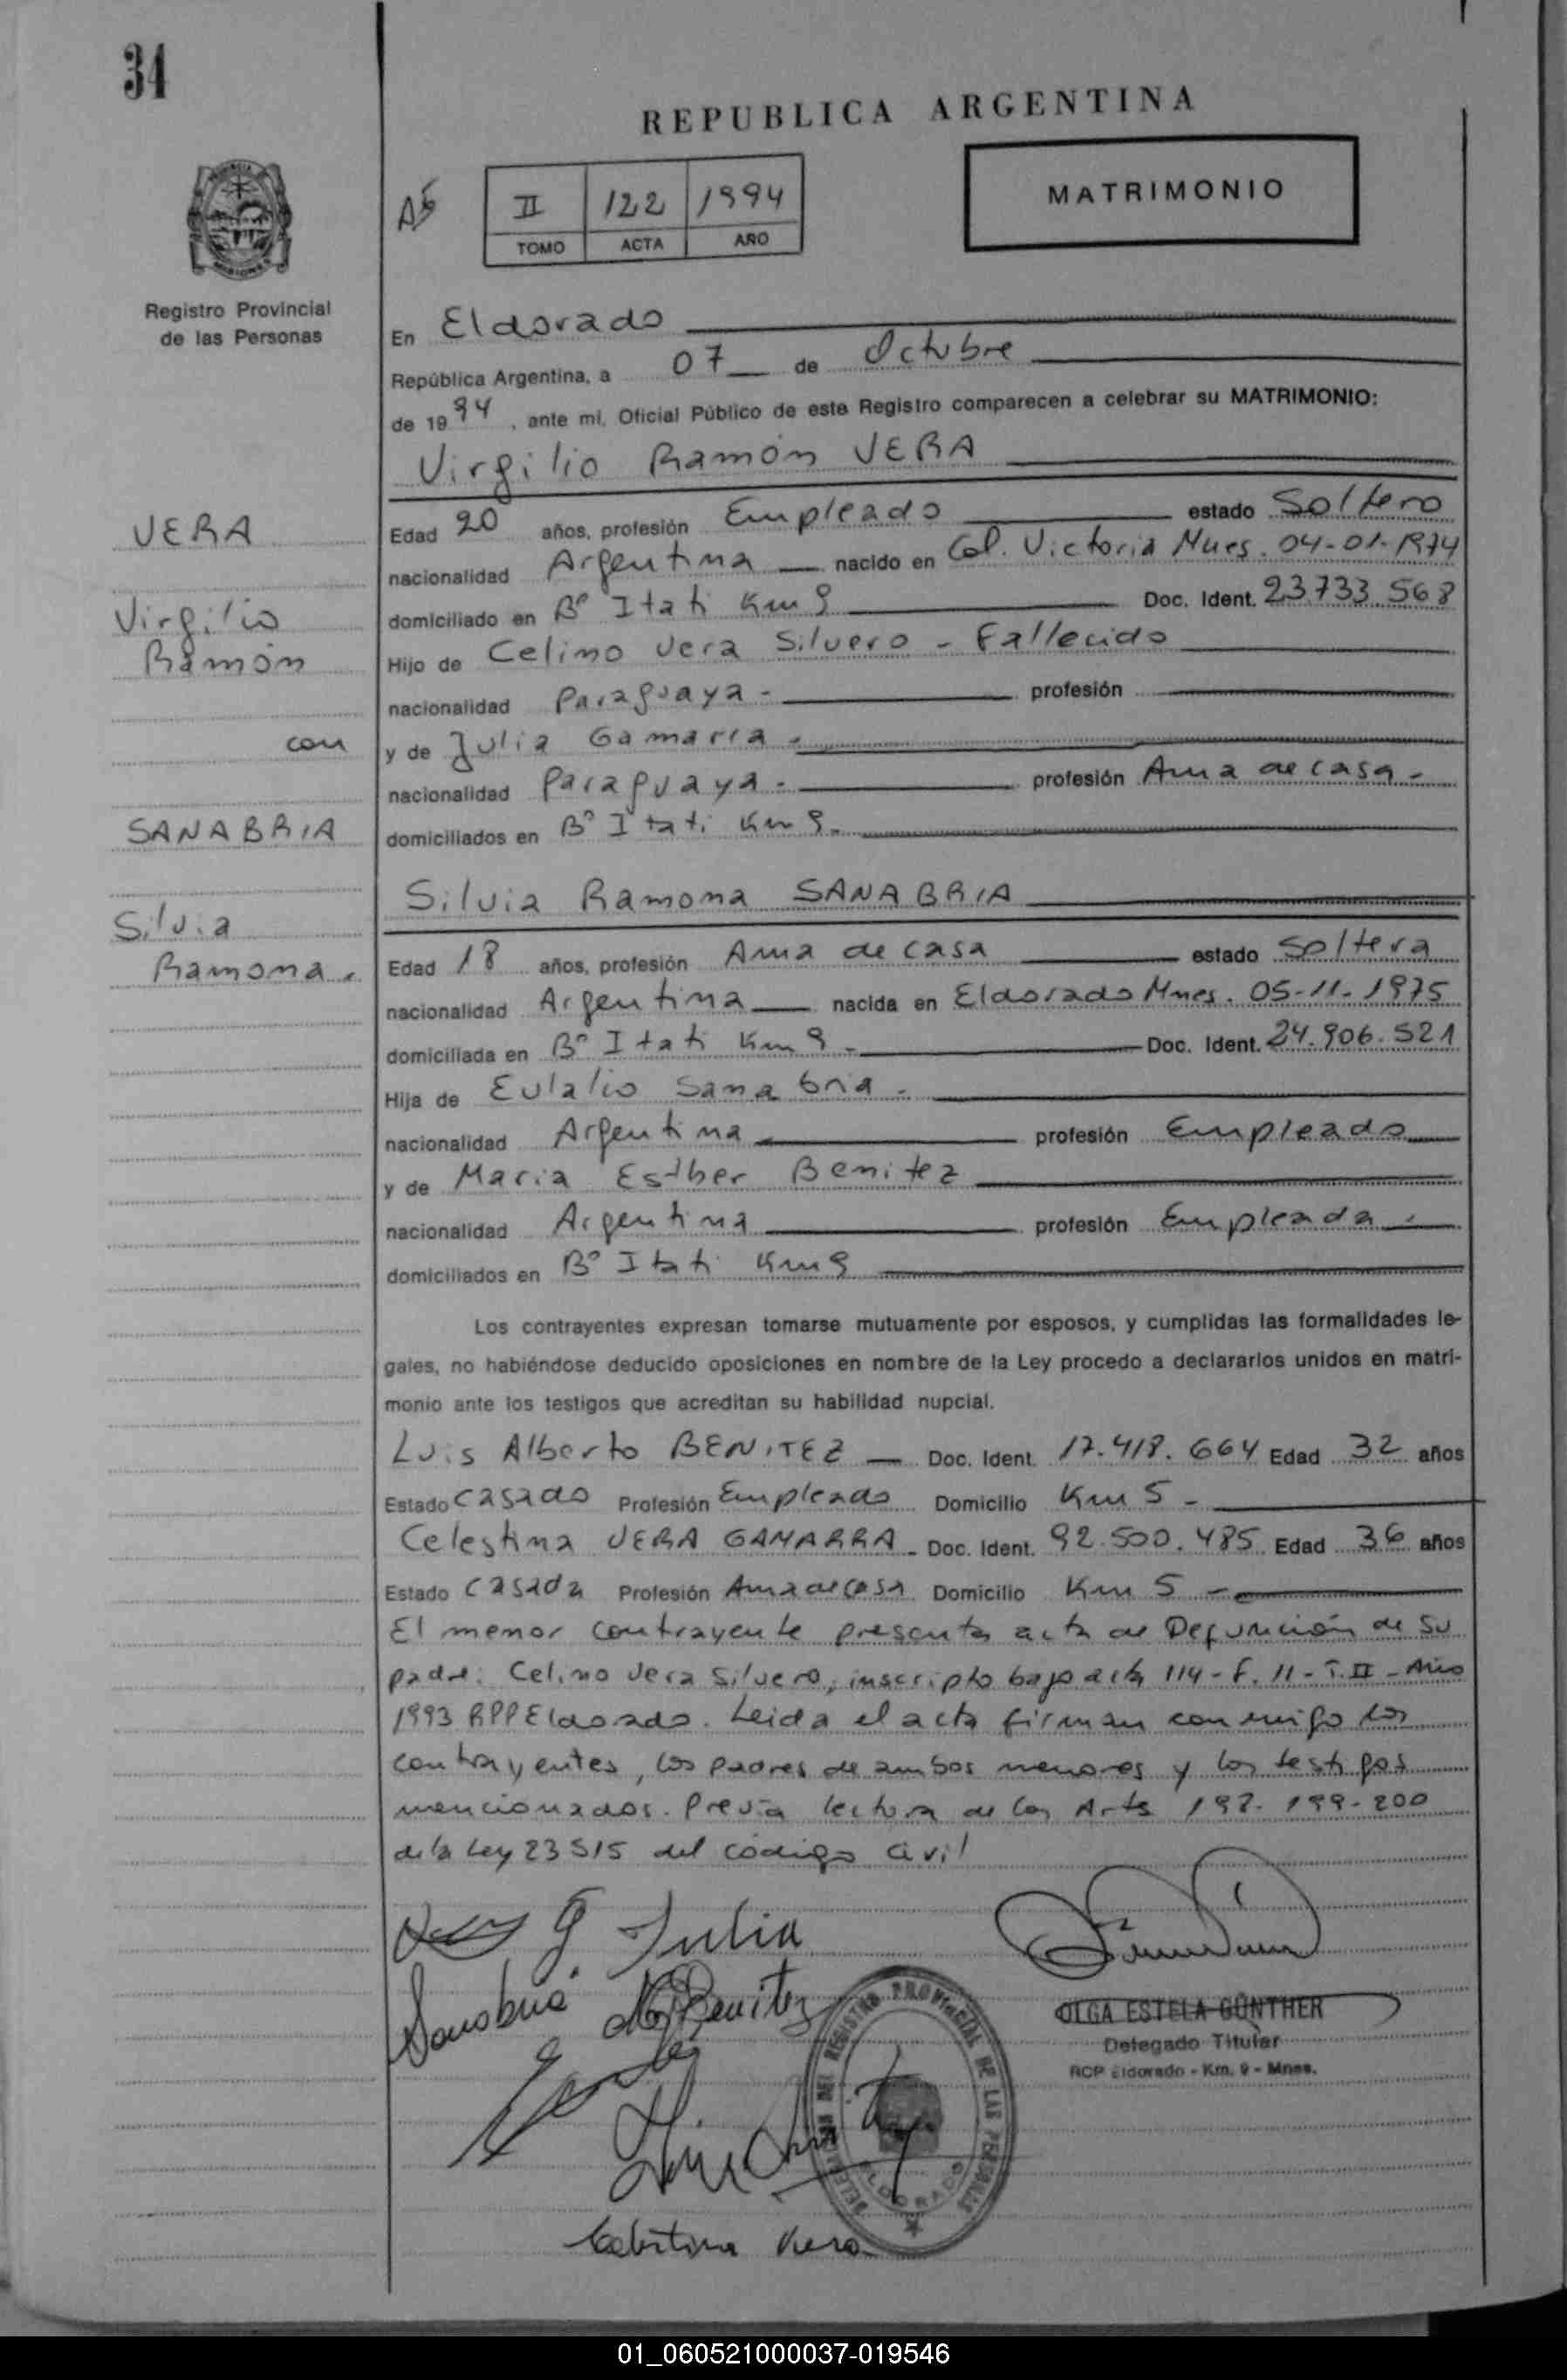 34
REPUBLICA ARGENTINA
MATRIMONIO
II 122 1994
TOMO ACTA AÑO
Registro Provincial
de las Personas
En Eldorado
República Argentina, a 07 de Octubre
de 1994, ante mí, Oficial Público de este Registro comparecen a celebrar su MATRIMONIO:
Virgilio Ramón VERA
VERA
Edad 20 años, profesión Empleado estado Soltero
nacionalidad Argentina nacido en Col. Victoria Mnes. 04-01-1974
Virgilio
domiciliado en Bº Itati Km 9 Doc. Ident. 23.733.568
Ramón
Hijo de Celino Vera Silvero - Fallecido
nacionalidad Paraguaya - profesión
con
y de Julia Gamarra -
nacionalidad Paraguaya - profesión Ama de casa -
SANABRIA
domiciliados en Bº Itati Km 9.
Silvia Ramona SANABRIA
Silvia
Ramona.
Edad 18 años, profesión Ama de casa estado Soltera
nacionalidad Argentina nacida en Eldorado Mnes. 05-11-1975
domiciliada en Bº Itati Km 9 - Doc. Ident. 24.906.521
Hija de Eulalio Sanabria -
nacionalidad Argentina profesión Empleado
y de Maria Esther Benitez
nacionalidad Argentina profesión Empleada.
domiciliados en Bº Itati Km 9
Los contrayentes expresan tomarse mutuamente por esposos, y cumplidas las formalidades le-
gales, no habiéndose deducido oposiciones en nombre de la Ley procedo a declararlos unidos en matri-
monio ante los testigos que acreditan su habilidad nupcial.
Luis Alberto BENITEZ - Doc. Ident. 17.418.664 Edad 32 años
Estado Casado Profesión Empleado Domicilio Km 5 -
Celestina VERA GAMARRA - Doc. Ident. 92.500.485 Edad 36 años
Estado Casada Profesión Ama de casa Domicilio Km 5 -
El menor contrayente presenta acta de Defunción de su
padre: Celino Vera Silvero, inscripto bajo acta 114 - F. 11 - T. II - Año
1993 RPP Eldorado. Leida el acta firman conmigo los
contrayentes, los padres de ambos menores y los testigos
mencionados. Previa lectura de los Arts 198-199-200
de la Ley 23515 del código civil
G. Julia
Sanabria
Benitez
OLGA ESTELA GÜNTHER
Delegado Titular
RCP Eldorado - Km. 9 - Mnes.
DEL REGISTRO PROVINCIAL DE LAS PERSONAS
ELDORADO
Celestina Vera
01_060521000037-019546